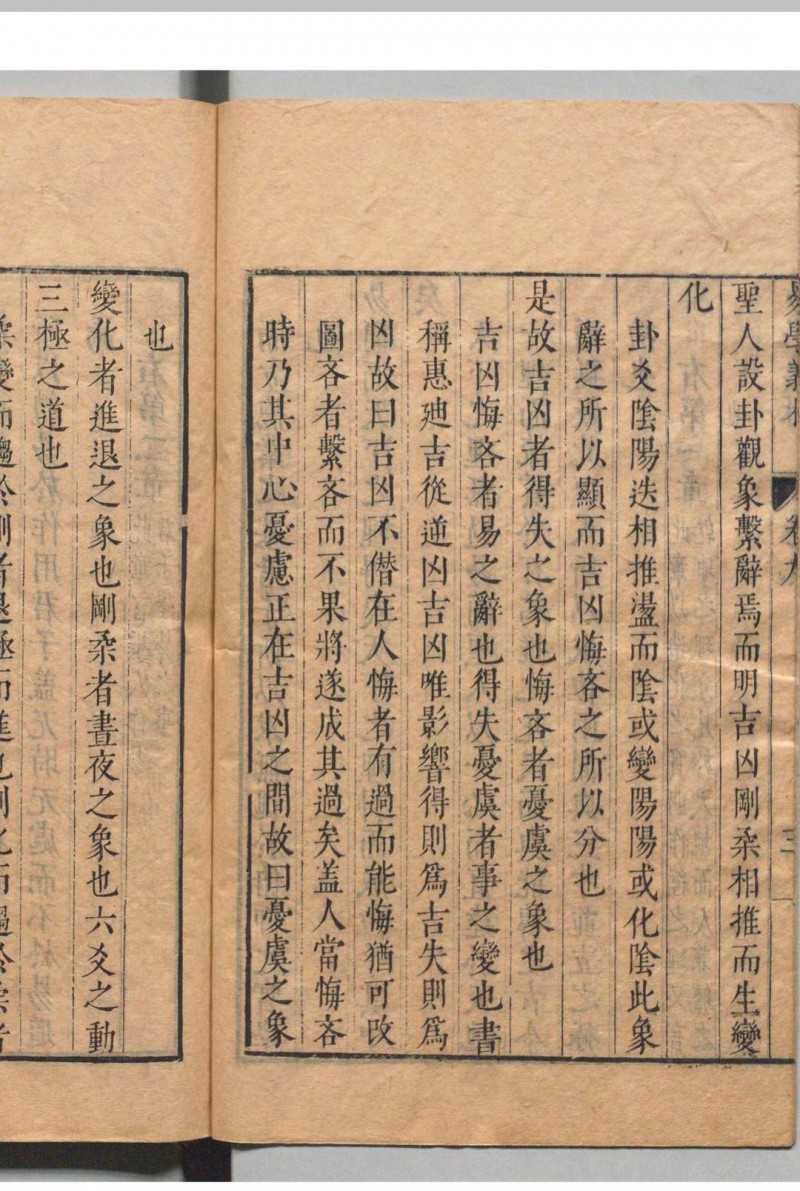 易學義林 卷九 三
聖人設卦觀象繫辭焉而明吉凶剛柔相推而生變
化
卦爻陰陽迭相推盪而陰或變陽陽或化陰此象
辭之所以顯而吉凶悔吝之所以分也
是故吉凶者得失之象也悔吝者憂虞之象也
吉凶悔吝者易之辭也得失憂虞者事之變也書
稱惠廸吉從逆凶吉凶唯影響得則爲吉失則爲
凶故曰吉凶不僭在人悔者有過而能悔猶可改
圖吝者繫吝而不果將遂成其過矣盖人當悔吝
時乃其中心憂慮正在吉凶之間故曰憂虞之象
也
變化者進退之象也剛柔者晝夜之象也六爻之動
三極之道也
柔變而趨於剛者退極而進也剛化而趨於柔者